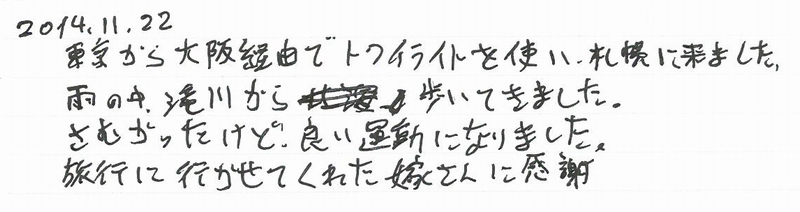 2014.11.22
東京から大阪経由でトワイライトを使い、札幌に来ました。
雨の中、滝川から歩いてきました。
さむかったけど、良い運動になりました。
旅行に行かせてくれた嫁さんに感謝